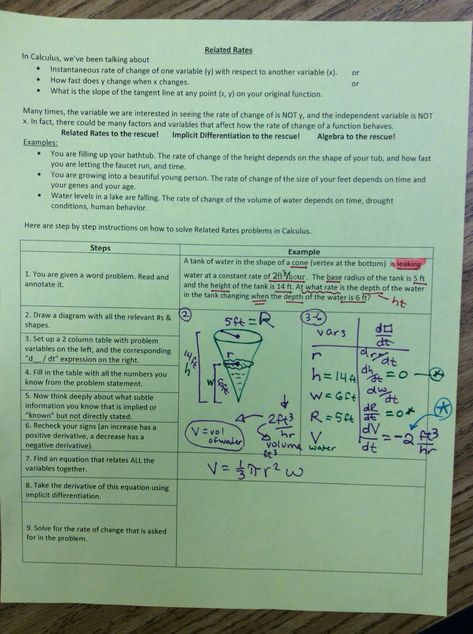 Related Rates
In Calculus, we've been talking about
• Instantaneous rate of change of one variable (y) with respect to another variable (x). or
• How fast does y change when x changes. or
• What is the slope of the tangent line at any point (x, y) on your original function.
Many times, the variable we are interested in seeing the rate of change of is NOT y, and the independent variable is NOT
x. In fact, there could be many factors and variables that affect how the rate of change of a function behaves.
Related Rates to the rescue! Implicit Differentiation to the rescue! Algebra to the rescue!
Examples:
• You are filling up your bathtub. The rate of change of the height depends on the shape of your tub, and how fast
you are letting the faucet run, and time.
• You are growing into a beautiful young person. The rate of change of the size of your feet depends on time and
your genes and your age.
• Water levels in a lake are falling. The rate of change of the volume of water depends on time, drought
conditions, human behavior.
Here are step by step instructions on how to solve Related Rates problems in Calculus.
Steps
Example
1. You are given a word problem. Read and
annotate it.
A tank of water in the shape of a cone (vertex at the bottom) is leaking
water at a constant rate of 2ft³/hour. The base radius of the tank is 5 ft
and the height of the tank is 14 ft. At what rate is the depth of the water
in the tank changing when the depth of the water is 6 ft?
ht
2. Draw a diagram with all the relevant #s &
shapes.
3. Set up a 2 column table with problem
variables on the left, and the corresponding
"d__ / dt" expression on the right.
4. Fill in the table with all the numbers you
know from the problem statement.
5. Now think deeply about what subtle
information you know that is implied or
"known" but not directly stated.
6. Recheck your signs (an increase has a
positive derivative, a decrease has a
negative derivative).
7. Find an equation that relates ALL the
variables together.
8. Take the derivative of this equation using
implicit differentiation.
9. Solve for the rate of change that is asked
for in the problem.
2
5ft = R
14ft
h
r
w
6ft
2ft³/hr
volume
ft³
V = vol
of water
3-6
vars d□/dt
r dr/dt
h = 14ft dh/dt = 0
w = 6ft dw/dt
R = 5ft dR/dt = 0*
V dV/dt = -2 ft³/hr
water
V = 1/3 π r² w